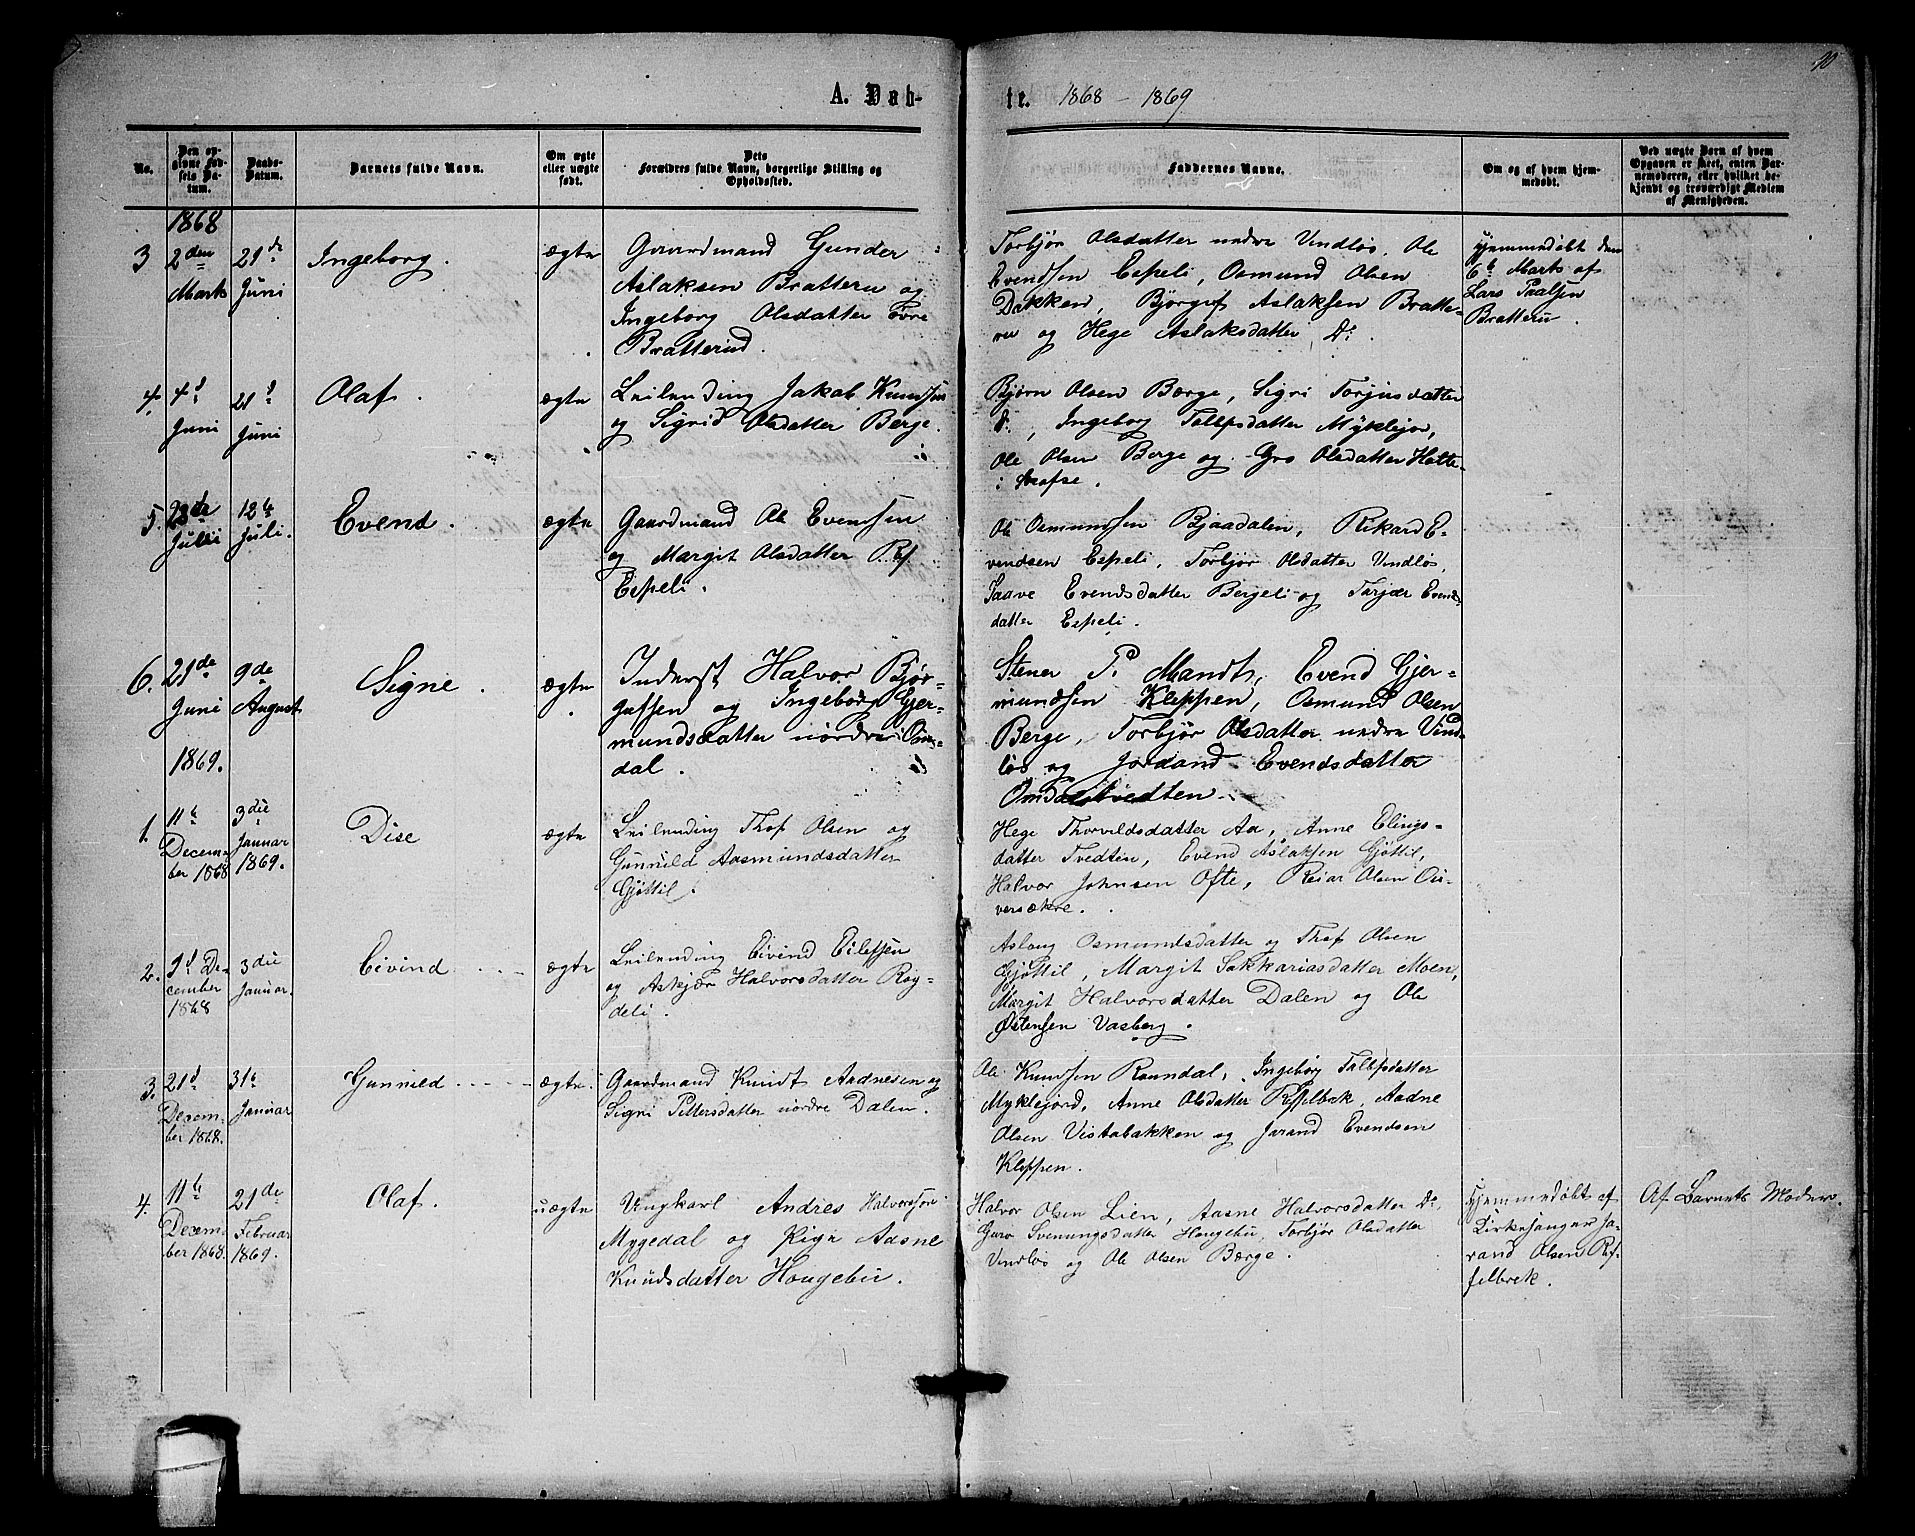 10
A. Dåb-
te. 1868 - 1869
No.
Den opgivne Fødsels Datum.
Daabs-Datum.
Barnets fulde Navn.
Om ægte eller uægte født.
Dets Forældres fulde Navn, borgerlige Stilling og Opholdssted.
Faddernes Navne.
Om og af hvem hjemmedøbt.
Ved uægte Børn af hvem Opgaven er skeet, enten Barnemoderen, eller hvilket bekjendt og troværdigt Medlem af Menigheden.
1868
3 2den Marts
21de Juni
Ingeborg.
ægte
Gaardmand Gunder
Aslaksen Bratteru og
Ingeborg Olsdatter øvre
Bratterud.
Torbjør Olsdatter nedre Vindløs, Ole
Evendsen Espeli, Osmund Olsen
Dakken, Bjørguf Aslaksen Bratte-
ru og Hege Aslaksdatter, Do
Hjemmedøbt den
6te Marts af
Lars Paalsen
Bratteru.
4. 4d Juni
21d Juni
Olaf.
ægte
Leilending Jakob Knudsen
og Sigrid Olsdatter Berge.
Bjørn Olsen Børge, Sigri Torjusdatter
d., Ingeborg Tallefsdatter Myklejor,
Ole Olsen Berge og Gro Olsdatter Hatte-
5. 23de Juli
12te Juli.
Evend.
ægte
Gaardmand Ole Evendsen
og Margit Olsdatter
Espeli.
Ole Osmundsen Bjaadalen, Rikard E-
vendsen Espeli, Torbjør Olsdatter Vindløs,
Saave Evendsdatter Bergeli og Tarjær Evends
datter Espeli.
6. 21de Juni
9de August
Signe.
ægte
Inderst Halvor Bjør-
gufsen og Ingeborg Gjer-
mundsdatter nordre Om-
dal.
Stener P. Mandt, Evend Gjer-
mundsen Kleppen, Osmund Olsen
Berge, Torbjør Olsdatter nedre Vind-
løs og Jordand Evendsdatter
Omdalstvedten.
1869.
1. 11te December 1868
3die Januar 1869.
Dise
ægte
Leilending Thof Olsen og
Gunnild Aasmundsdatter
Gjøttil.
Hege Thorvildsdatter Aa, Anne Elings-
datter Tvedten, Evend Aslaksen Gjøttil,
Halvor Johnsen Ofte, Reiar Olsen On-
versækre.
2. 9d December 1868
3die Januar.
Eivind
ægte
Leilending Eivind Eilefsen
og Askjær Halvorsdatter Røy-
deli.
Aslaug Osmundsdatter og Thof Olsen
Gjøttil, Margit Sakkariasdatter Moen,
Margit Halvorsdatter Dalen og Ole
Østensen Vasberg.
3. 21d December 1868.
31te Januar
Gunnild
ægte.
Gaardmand Knudt Aadnesen og
Signi Pettersdatter nordre Dalen.
Ole Knudsen Raundal, Ingebor Tallefsdatter
Myklejord, Anne Olsdatter Reffelbæk, Aadne
Olsen Vistabakken og Jarand Evendsen
Kleppen.
4. 11te December 1868.
21de Februar 1869.
Olaf.
uægte
Ungkarl Andres Halvorsen
Mygedal og Pige Aasne
Knudsdatter Hougebu.
Halvor Olsen Lien, Aasne Halvorsdatter Do,
Guro Svenungsdatter Hougebu, Torbjør Olsdatter
Vindløs og Ole Olsen Børge.
Hjemmedøbt af
Kirkesanger Ja-
rand Olsen Ref-
felbæk.
Af Barnets Moder.